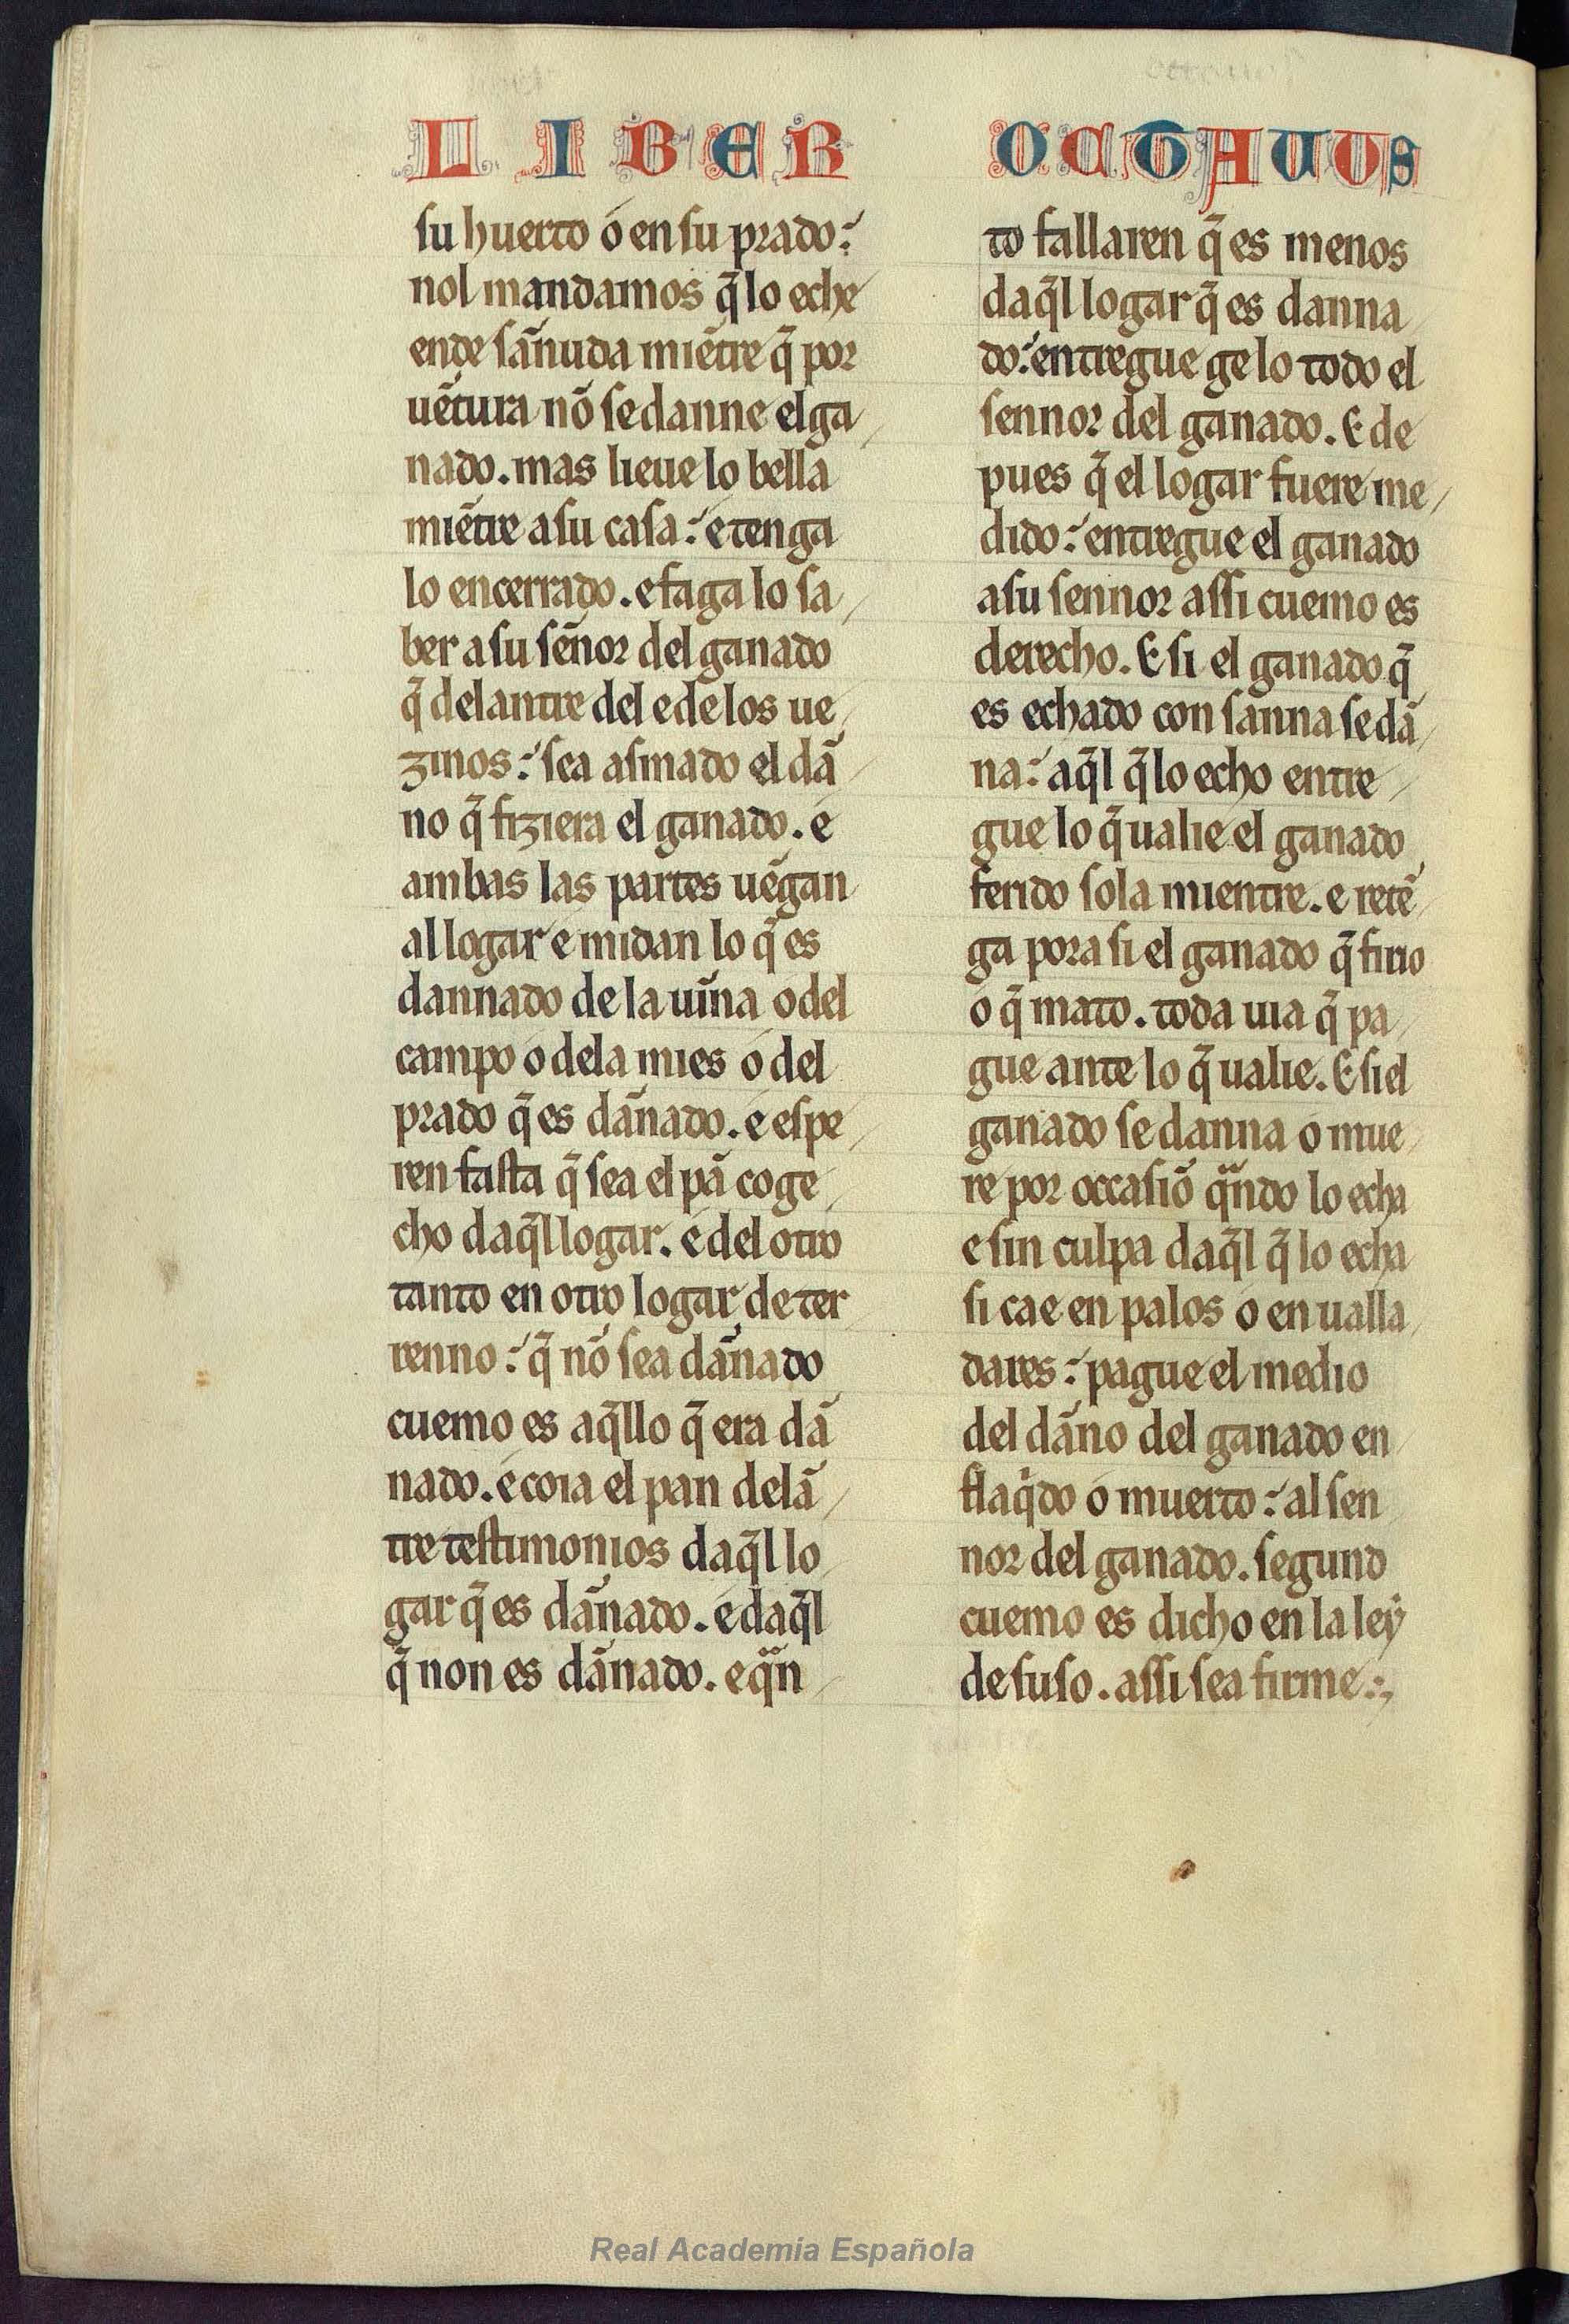 LIBER OCTAUUS
su huerto o en su prado:
nol mandamos q̃ lo eche
ende sãnuda miẽtre q̃ por
uẽtura nõ se danne el ga
nado. mas lieue lo bella
miẽtre a su casa: e tenga
lo encerrado. e faga lo sa
ber a su sẽnor del ganado
q̃ delantre del e de los ue
zinos: sea asmado el dã
no q̃ fiziera el ganado. e
ambas las partes uẽgan
al logar e midan lo q̃ es
dannado de la uĩna o del
campo o dela mies o del
prado q̃ es dãnado. e espe
ren fasta q̃ sea el pã coge
cho daq̃l logar. e del otro
tanto en otro logar de ter
renno: q̃ nõ sea dãnado
cuemo es aq̃llo q̃ era dã
nado. e coia el pan delã
tre testimonios daq̃l lo
gar q̃ es dãnado. e daq̃l
q̃ non es dãnado. e qᵃn
to fallaren q̃ es menos
daq̃l logar q̃ es danna
do: entregue ge lo todo el
sennor del ganado. E de
pues q̃ el logar fuere me
dido: entregue el ganado
a su sennor assi cuemo es
derecho. E si el ganado q̃
es echado con sanna se dã
na: aq̃l q̃ lo echo entre
gue lo q̃ ualie el ganado
ferido sola mientre. e retẽ
ga pora si el ganado q̃ firio
o q̃ mato. toda uia q̃ pa
gue ante lo q̃ ualie. E si el
ganado se danna o mue
re por occasiõ qᵃndo lo echa
e sin culpa daq̃l q̃ lo echa
si cae en palos o en ualla
dares: pague el medio
del dãno del ganado en
flaqⁱdo o muerto: al sen
nor del ganado. segund
cuemo es dicho en la ley
de suso. assi sea firme.
Real Academia Española